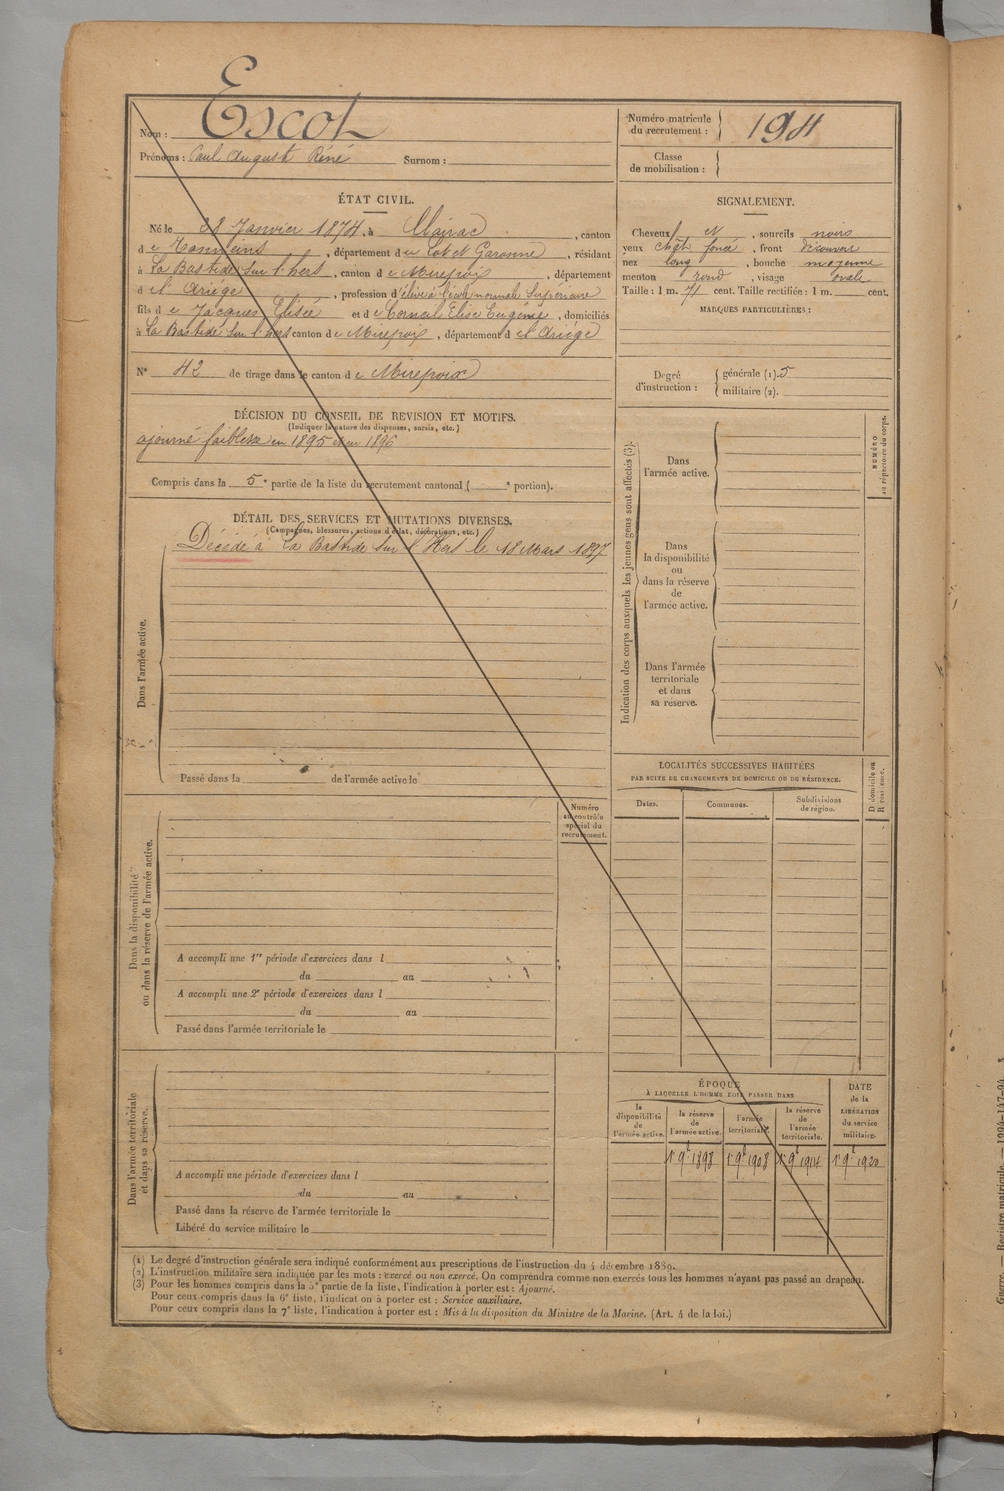 Nom : Escot
Prénoms : Paul August Réné Surnom :
Numéro matricule du recrutement : 194
Classe de mobilisation :
ÉTAT CIVIL.
Né le 28 Janvier 1874, à Clairac, canton
de Tonneins, département de Lot et Garonne, résidant
à La Bastide sur l'hers, canton de Mirepoix, département
de l'Ariége, profession d'élève à l'école normale Supérieure
fils de Jacques Elisée et de Elise Eugénie, domiciliés
à La Bastide sur l'hers canton de Mirepoix, département de l'Ariège
N° 42 de tirage dans le canton de Mirepoix
SIGNALEMENT.
Cheveux N, sourcils noirs
yeux chgt foncé, front découvert
nez long, bouche moyenne
menton rond, visage ovale
Taille : 1 m. 71 cent. Taille rectifiée : 1 m. cent.
MARQUES PARTICULIÈRES :
Degré d'instruction : générale (1). 5
militaire (2).
DÉCISION DU CONSEIL DE REVISION ET MOTIFS.
(Indiquer la nature des dispenses, sursis, etc.)
ajourné faiblesse en 1895 et en 1896
Compris dans la 5e partie de la liste du recrutement cantonal ( e portion).
DÉTAIL DES SERVICES ET MUTATIONS DIVERSES.
(Campagnes, blessures, actions d'éclat, décorations, etc.)
Décédé à La Bastide sur l'Hers le 18 Mars 1897
Dans l'armée active.
Passé dans la de l'armée active le
Indication des corps auxquels les jeunes gens sont affectés (3).
Dans l'armée active.
Dans la disponibilité ou dans la réserve de l'armée active.
Dans l'armée territoriale et dans sa réserve.
NUMÉRO au répertoire du corps.
LOCALITÉS SUCCESSIVES HABITÉES
PAR SUITE DE CHANGEMENTS DE DOMICILE OU DE RÉSIDENCE.
Dates. Communes. Subdivisions de région.
D domicile ou R résidence.
Numéro au contrôle spécial du recrutement.
Dans la disponibilité ou dans la réserve de l'armée active.
A accompli une 1re période d'exercices dans l
du au
A accompli une 2e période d'exercices dans l
du au
Passé dans l'armée territoriale le
Dans l'armée territoriale et dans sa réserve.
A accompli une période d'exercices dans l
du au
Passé dans la réserve de l'armée territoriale le
Libéré du service militaire le
ÉPOQUE
À LAQUELLE L'HOMME DOIT PASSER DANS
la disponibilité de l'armée active.
la réserve de l'armée active.
l'armée territoriale.
la réserve de l'armée territoriale.
DATE de la LIBÉRATION du service militaire.
1er 9bre 1898 1er 9bre 1908 1er 9bre 1914 1er 9bre 1920
(1) Le degré d'instruction générale sera indiqué conformément aux prescriptions de l'instruction du 4 décembre 1889.
(2) L'instruction militaire sera indiquée par les mots : exercé ou non exercé. On comprendra comme non exercés tous les hommes n'ayant pas passé au drapeau.
(3) Pour les hommes compris dans la 5e partie de la liste, l'indication à porter est : Ajourné.
Pour ceux compris dans la 6e liste, l'indication à porter est : Service auxiliaire.
Pour ceux compris dans la 7e liste, l'indication à porter est : Mis à la disposition du Ministre de la Marine. (Art. 4 de la loi.)